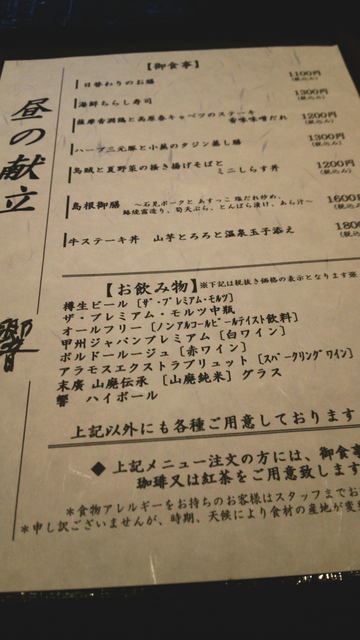 昼の献立
響
【御食事】
日替わりのお膳 1100円
(税込み)
海鮮ちらし寿司 1300円
(税込み)
薩摩香潤鶏と高原春キャベツのステーキ
香味味噌だれ 1200円
(税込み)
ハーブ三元豚と小蕪のタジン蒸し膳 1300円
(税込み)
烏賊と夏野菜の掻き揚げそばと
ミニしらす丼 1200円
(税込み)
島根御膳 ～石見ポークと あすっこ 塩だれ炒め、
筍天ぷら、とんばら漬け、あら汁～ 1600円
(税込
牛ステーキ丼 山芋とろろと温泉玉子添え 1800
(税込
【お飲み物】※下記は税抜き価格の表示となります※
樽生ビール [ザ・プレミアム・モルツ]
ザ・プレミアム・モルツ中瓶
オールフリー [ノンアルコールビールテイスト飲料]
甲州ジャパンプレミアム [白ワイン]
ボルドールージュ [赤ワイン]
アラモスエクストラブリュット [スパークリングワイン]
末廣 山廃伝承 [山廃純米] グラス
響 ハイボール
上記以外にも各種ご用意しております
◆ 上記メニュー注文の方には、御食事
珈琲又は紅茶をご用意致します
＊食物アレルギーをお持ちのお客様はスタッフまでお
＊申し訳ございませんが、時期、天候により食材の産地が変